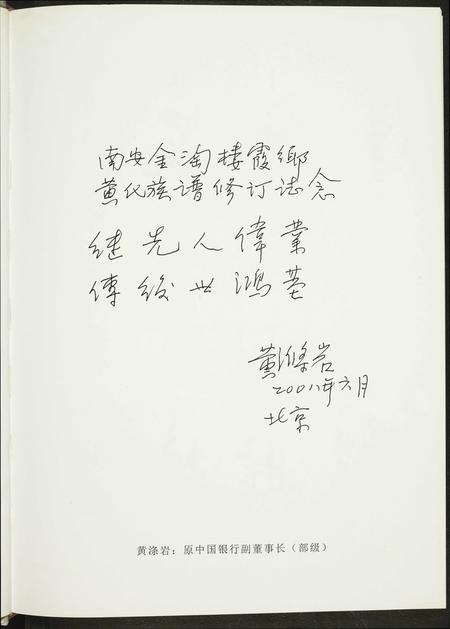 南安金淘棲霞鄉
黄氏族谱修订誌念
继先人偉業
傳後世鴻基
黄涤岩
2001年六月
北京
黄涤岩：原中国银行副董事长（部级）